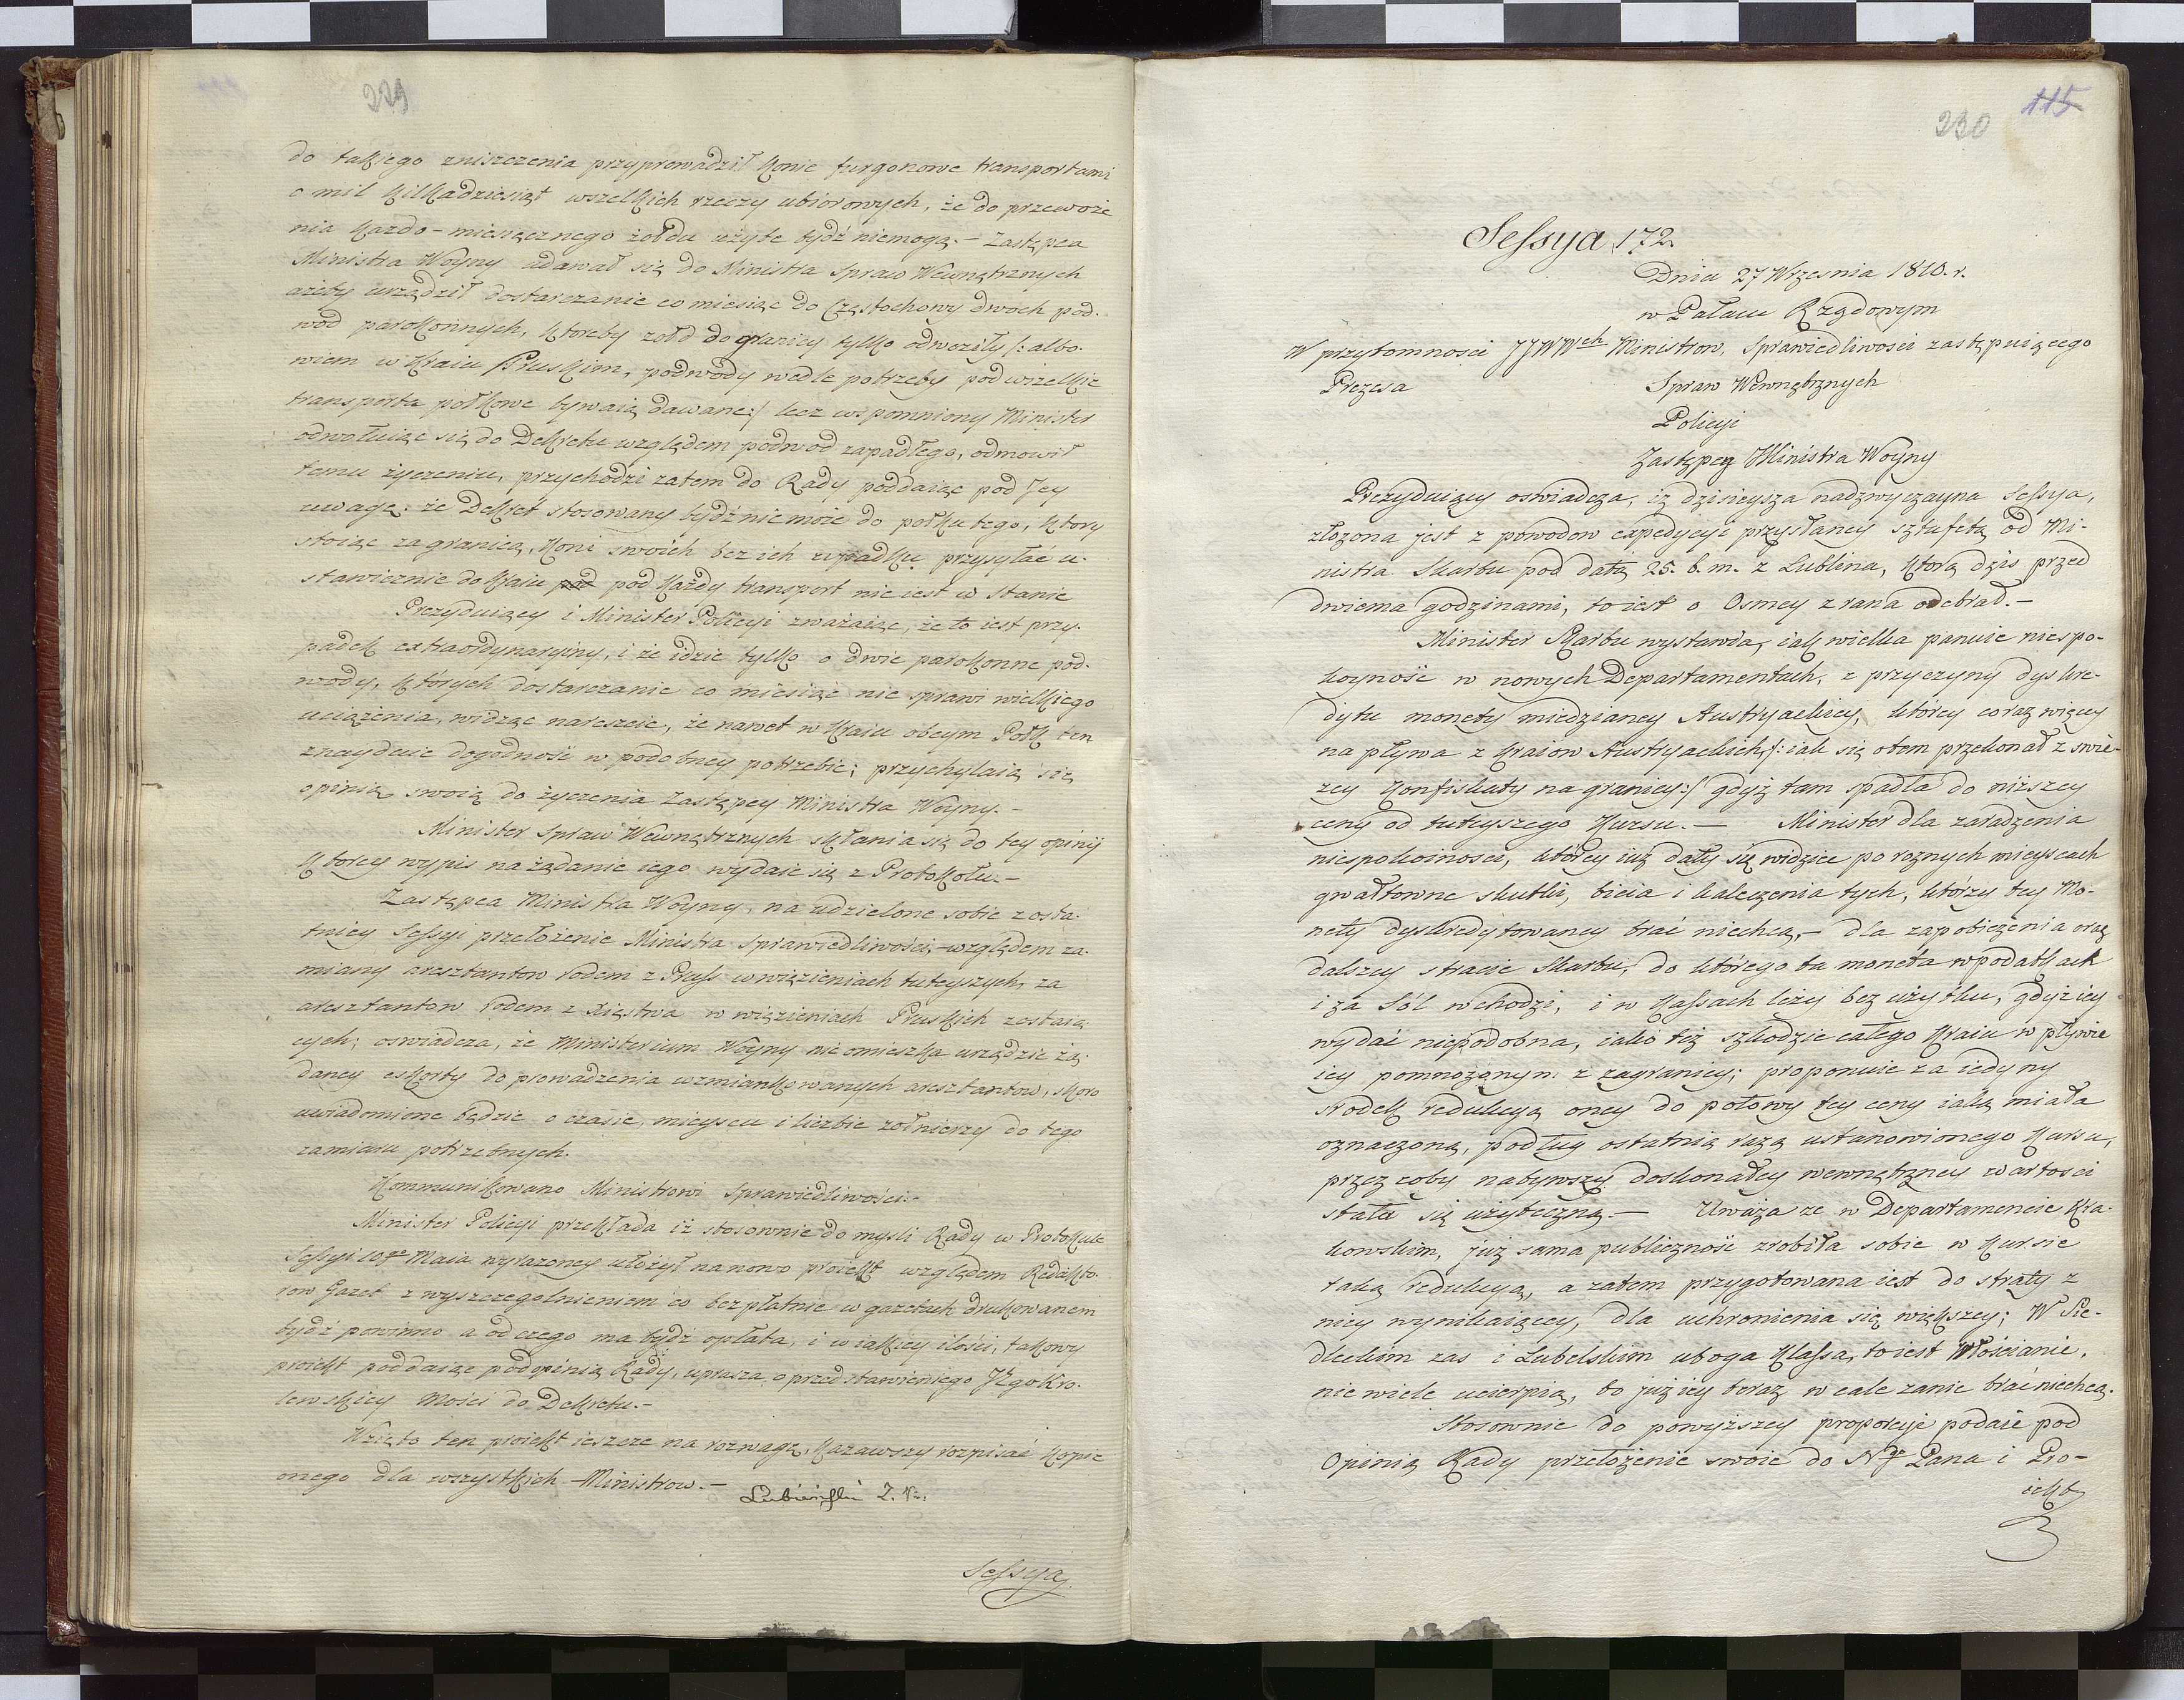 229
do takiego zniszczenia przyprowadził konie furgonowe transportami
o mil kilkadziesiąt wszelkich rzeczy ubiorowych, że do przewoże
nia każdo-miesięcznego żołdu użyte bydź niemogą.- Zastępca
Ministra Woyny udawał się do Ministra Spraw Wewnętrznych
ażeby urządził dostarczanie co miesiąc do Częstochowy dwoch pod-
wod parokonnych, ktoreby żołd do granicy tylko odwoziły /: albo-
wiem w Kraiu Pruskim, podwody wedle potrzeby pod wszelkie
transporta połkowe bywaią dawane:/ lecz wspomniony Minister
odwołuiąc się do Dekretu względem podwod zapadłego, odmowił
temu życzeniu, przychodzi zatem do Rady poddaiąc pod Jey
uwagę: że Dekret stosowany bydź nie może do połku tego, ktory
stoiąc zagranicą, koni swoich bez ich upadku przysyłać u-
stawicznie do kraiu pod pod każdy transport nie iest w stanie
Prezyduiący i Minister Policyi zważaiąc, że to iest przy-
padek extraordynaryiny, i że idzie tylko o dwie parokonne pod-
wody, których dostarczanie co miesiąc nie sprawi wielkiego
uciążenia, widząc nareszcie, że nawet w Kraiu obcym Połk ten
znayduie dogodność w podobney potrzebie; przychylaią się
opinią swoią do życzenia Zastępcy Ministra Woyny.-
Minister Spraw Wewnętrznych skłania się do tey opinij
ktorey wypis na żądanie iego wydaie się z Protokołu.-
Zastępca Ministra Woyny, na udzielone sobie z osta-
tniey Sessyi przełożenie Ministra Sprawiedliwości,- względem za-
miany aresztantow rodem z Pruss w więzieniach tuteyszych, za
aresztantow rodem z Xięstwa w więzieniach Pruskich zostaią-
cych; oswiadcza, że Ministerium Woyny nie omieszka urządzić żą-
daney eskorty do prowadzenia wzmiankowanych aresztantow, skoro
uwiadomione będzie o czasie, mieyscu i liczbie zołnierzy do tego
zamiaru potrzebnych.
Kommunikowano Ministrowi Sprawiedliwości.-
Minister Policyi przekłada iż stosownie do mysli Rady w Protokule
Sessyi 10go Maia wyrazoney ułożył na nowo proiekt względem Redakto-
row Gazet z wyszczegolnieniem co bezpłatnie w gazetach drukowanem
bydź powinno a od czego ma bydź opłata, i w iakiey ilości, takowy
proiekt poddaiąc pod opinią Rady, uprasza o przedstawienie go JKgo Kro-
lewskiey Mości do Dekretu.-
Wzięto ten proiekt ieszcze na rozwagę, kazawszy rozpisać kopie
onego dla wszystkich Ministrow.-
Sessya
115
230
Sessya 172
Dnia 27 Września 1810. r.
w Pałacu Rządowym
W przytomnosci JJWWch Ministrow, Sprawiedliwosci zastępuiącego
Prezesa Spraw Wewnętrznych
Policyi
Zastępcy Ministra Woyny
Prezyduiący oswiadcza, iż dzisieysza nadzwyczayna Sessya,
złożona jest z powodow expedycyi przysłaney sztafetą od Mi-
nistra Skarbu pod datą 25. b. m. z Lublina, którą dziś przed
dwiema godzinami, to iest o Osmey z rana odebrał.-
Minister Skarbu wystawia, iak wielka panuie niespo-
koyność w nowych Departamentach, z przyczyny dyskre-
dytu monety miedzianey Austryackiey, którey coraz więcey
napływa z kraiow Austryackich,/: iak się otem przekonał z swie-
żey konfiskaty na granicy:/ gdyż tam spadła do niższey
ceny od tuteyszego Kursu.- Minister dla zaradzenia
niespokoinosci, którey iuż dały się widziec po roznych mieyscach
gwałtowne skutki, bicia i kaleczenia tych, którzy tey Mo-
nety dyskredytowaney brać niechcą,- dla zapobieżenia oraz
dalszey stracie Skarbu, do którego ta moneta w podatkach
i za Sól wchodzi, i w Kassach leży bez użytku, gdyż iey
wydać niepodobna, iako też szkodzie całego Kraiu w pływie
iey pomnożonym z zagranicy; proponuie za iedyny
srodek redukcyą oney do połowy tey ceny iaką miała
oznaczoną, podług ostatnią razą ustanowionego Kursu,
przez coby nabywszy doskonałey wewnętrzney wartosci
stała się użyteczną.- Uważa że w Departamencie Kra-
kowskim, już sama publiczność zrobiła sobie w kursie
taką redukcyą, a zatem przygotowana iest do straty z
niey wynikaiącey, dla uchronienia się większey; W Sie-
dleckim zas i Lubelskim uboga Klassa, to iest Włościanie,
nie wiele ucierpią, bo już iey teraz w cale zanic brać niechcą.
Stosownie do powyższey propozycyi podaie pod
Opinią Rady przełożenie swoie do Ngo Pana i Pro-
iekt